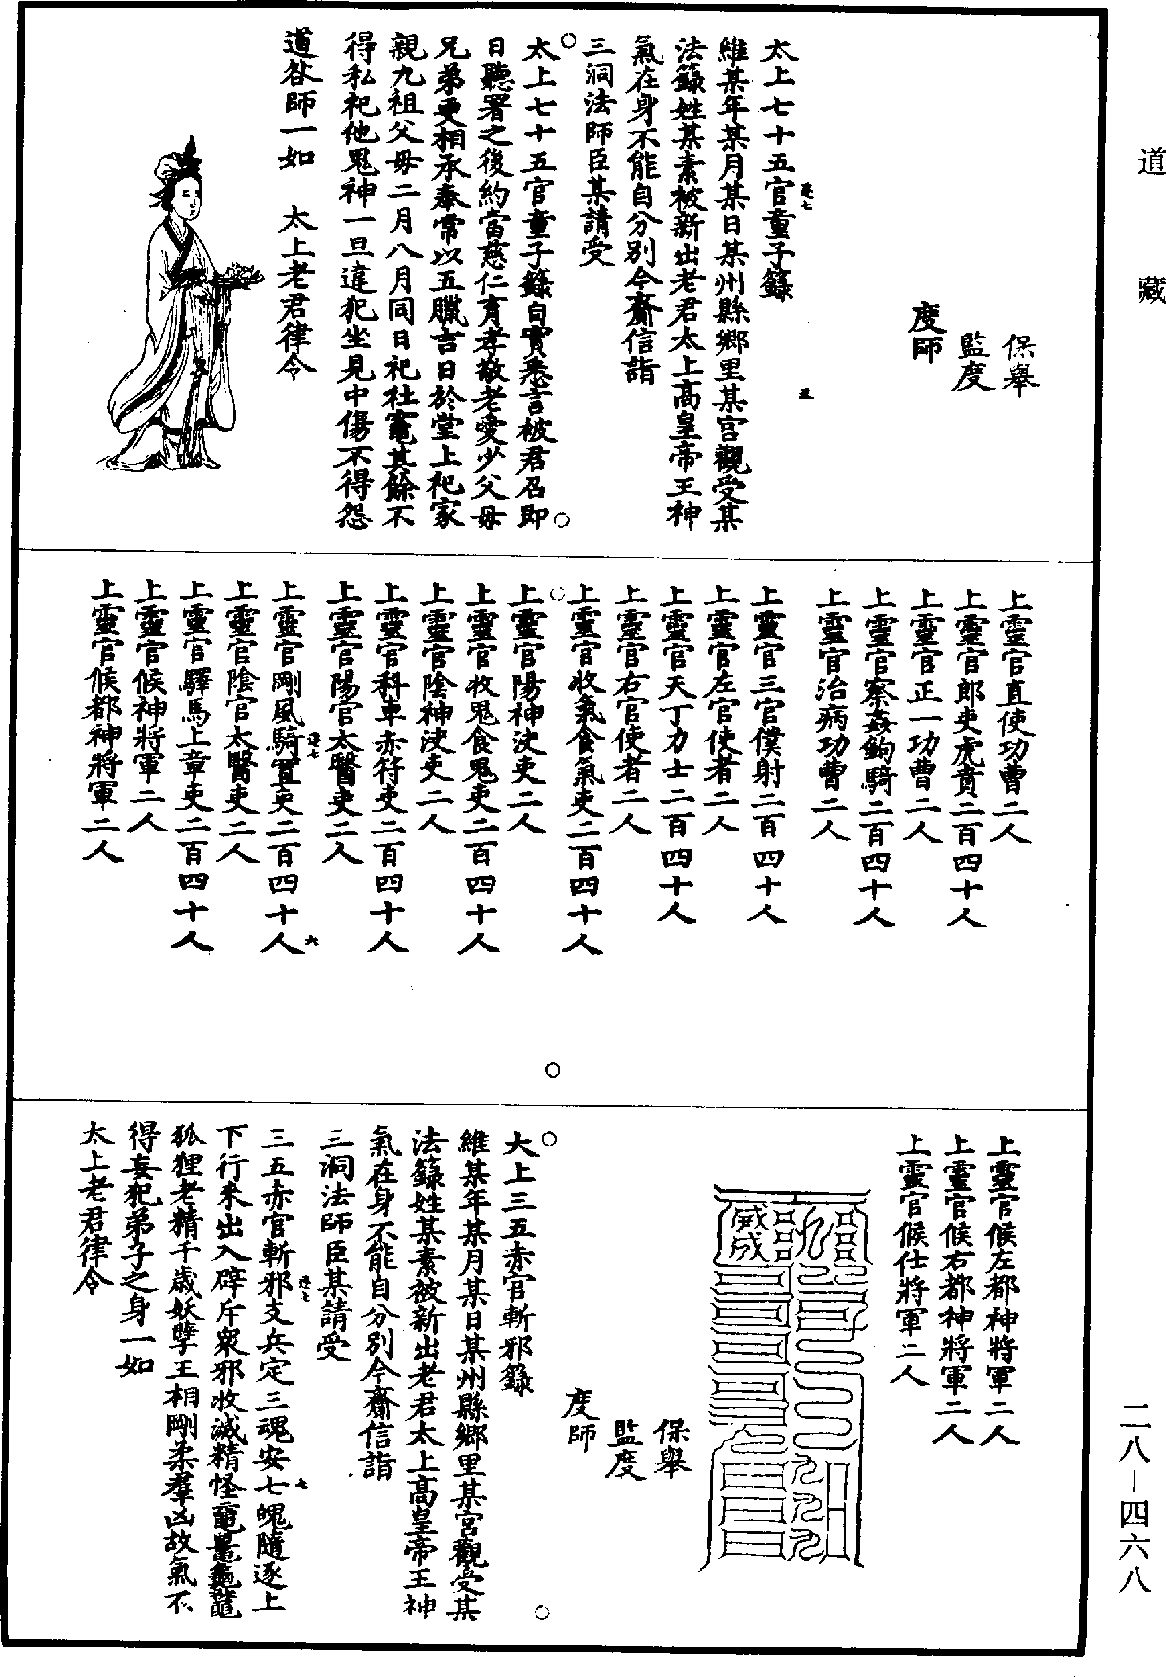 道藏
保舉
監度
度師
太上七十五官童子籙
維某年某月某日某州縣鄉里某宮觀受某
法籙姓某素被新出老君太上高皇帝王神
氣在身不能自分別今齋信詣
三洞法師臣某請受
太上七十五官童子籙自實悉言被君召即
日聽署之後約當慈仁育孝敬老愛少父母
兄弟更相承奉常以五臘吉日於堂上祀家
親九祖父母二月八月同日祀社竈其餘不
得私祀他鬼神一旦違犯坐見中傷不得怨
道咎師一如　太上老君律令
上靈官直使功曹二人
上靈官郎吏虎賁二百四十人
上靈官正一功曹二人
上靈官察姦鉤騎二百四十人
上靈官治病功曹二人
上靈官三官僕射二百四十人
上靈官左官使者二人
上靈官天丁力士二百四十人
上靈官右官使者二人
上靈官收氣食氣吏二百四十人
上靈官陽神決吏二人
上靈官收鬼食鬼吏二百四十人
上靈官陰神決吏二人
上靈官科車赤符吏二百四十人
上靈官陽官太醫吏二人
上靈官剛風騎置吏二百四十人
上靈官陰官太醫吏二人
上靈官驛馬上章吏二百四十人
上靈官候神將軍二人
上靈官候都神將軍二人
上靈官候左都神將軍二人
上靈官候右都神將軍二人
上靈官候仕將軍二人
保舉
監度
度師
太上三五赤官斬邪籙
維某年某月某日某州縣鄉里某宮觀受某
法籙姓某素被新出老君太上高皇帝王神
氣在身不能自分別今齋信詣
三洞法師臣某請受
三五赤官斬邪支兵定三魂安七魄隨逐上
下行來出入辟斥衆邪收滅精怪黿鼉龜龍
狐狸老精千歲妖孽王相剛柔羣凶故氣不
得妄犯弟子之身一如
太上老君律令
二八—四六八